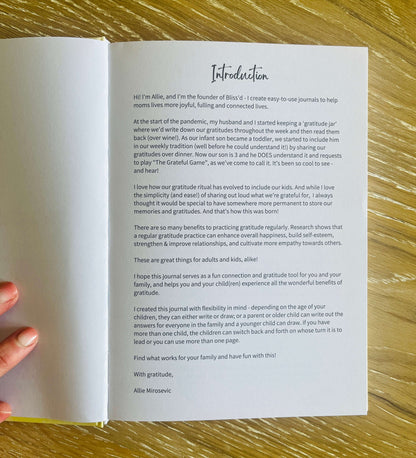 Introduction
Hi! I'm Allie, and I'm the founder of Bliss'd - I create easy-to-use journals to help
moms lives more joyful, fulling and connected lives.
At the start of the pandemic, my husband and I started keeping a 'gratitude jar'
where we'd write down our gratitudes throughout the week and then read them
back (over wine!). As our infant son became a toddler, we started to include him
in our weekly tradition (well before he could understand it!) by sharing our
gratitudes over dinner. Now our son is 3 and he DOES understand it and requests
to play "The Grateful Game", as we've come to call it. It's been so cool to see -
and hear!
I love how our gratitude ritual has evolved to include our kids. And while I love
the simplicity (and ease!) of sharing out loud what we're grateful for, I always
thought it would be special to have somewhere more permanent to store our
memories and gratitudes. And that's how this was born!
There are so many benefits to practicing gratitude regularly. Research shows that
a regular gratitude practice can enhance overall happiness, build self-esteem,
strengthen & improve relationships, and cultivate more empathy towards others.
These are great things for adults and kids, alike!
I hope this journal serves as a fun connection and gratitude tool for you and your
family, and helps you and your child(ren) experience all the wonderful benefits of
gratitude.
I created this journal with flexibility in mind - depending on the age of your
children, they can either write or draw; or a parent or older child can write out the
answers for everyone in the family and a younger child can draw. If you have
more than one child, the children can switch back and forth on whose turn it is to
lead or you can use more than one page.
Find what works for your family and have fun with this!
With gratitude,
Allie Mirosevic